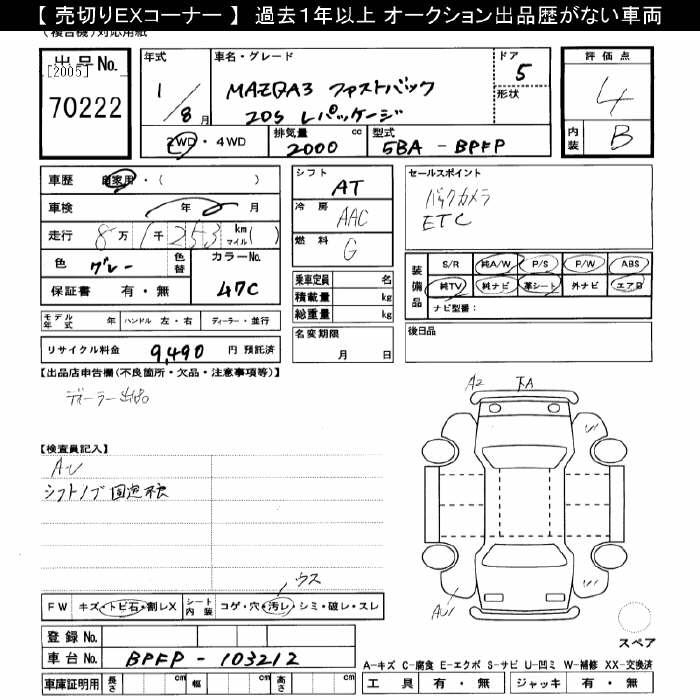 【 売切りEXコーナー 】 過去１年以上 オークション出品歴がない車両
(複合機)対応用紙
出品No. [2005] 70222
年式 1/8月
車名・グレード MAZDA3 ファストバック
20S Lパッケージ
ドア 5
形状
評価点 4
内装 B
2WD・4WD
排気量 2000 cc
型式 5BA - BPFP
車歴 自家用・( )
車検 年 月
走行 8万1千253 km マイル( )
色 グレー
色替
カラーNo. 47C
保証書 有・無
シフト AT
冷房 AAC
燃料 G
乗車定員 名
積載量 kg
総重量 kg
名変期限
月 日
セールスポイント
バックカメラ
ETC
装備品
S/R 純A/W P/S P/W ABS
純TV 純ナビ 革シート 外ナビ エアB
ナビ型番:
後日品
モデル年式 年 ハンドル 左・右 ディーラー・並行
リサイクル料金 9,490 円 預託済
【出品店申告欄(不良箇所・欠品・注意事項等)】
ディーラー出品
【検査員記入】
AU
シフトノブ固定不良
ウス
FW キズ・トビ石・割レX シート内装 コゲ・穴・汚レ・シミ・破レ・スレ
A2 下A
U
U
U
AU
スペア
登録No.
車台No. BPFP - 103212
車庫証明用 長さ cm 幅 cm 高さ cm
A-キズ C-腐食 E-エクボ S-サビ U-凹ミ W-補修 XX-交換済
工具 有・無 ジャッキ 有・無